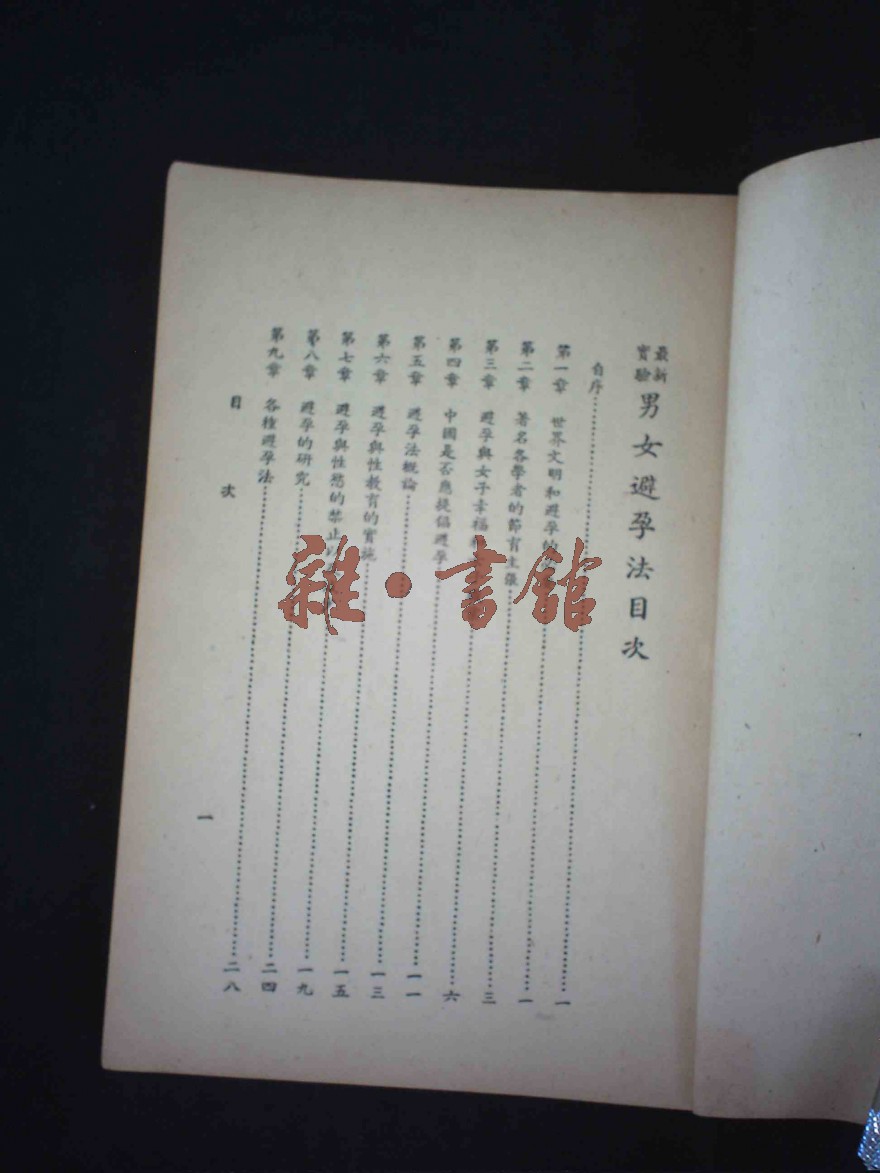 最新
實驗
男女避孕法目次
自序…………一
第一章 世界文明和避孕的…………一
第二章 著名各學者的節育主張…………三
第三章 避孕與女子幸福…………六
第四章 中國是否應提倡避孕…………一一
第五章 避孕法概論…………一三
第六章 避孕與性教育的實施…………一五
第七章 避孕與性慾的禁止以…………一九
第八章 避孕的研究…………二四
第九章 各種避孕法…………二八
目次
一
雜·書館